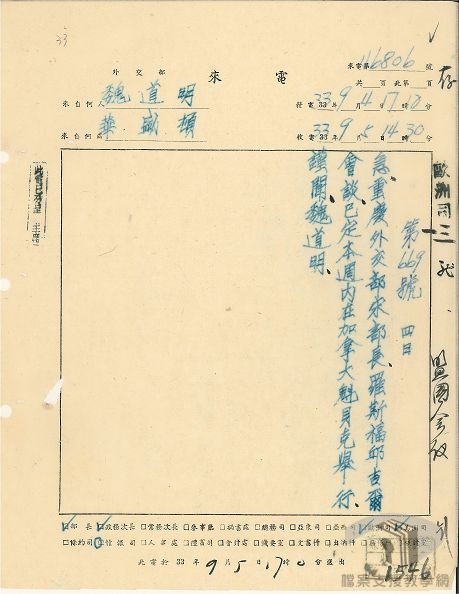 33
來電第 46806 號
存
外交部 來電
共 頁 此第 頁
來自何人 魏道明
發電 33年 9月 4日 7時 28分
來自何處 華盛頓
收電 33年 9月 5日 14時 30分
第669號 四日
急、重慶外交部宋部長、羅斯福邱吉爾
會談已定本週內在加拿大魁貝克舉行、
謹聞、魏道明、
此電已另呈 主席
歐洲司
盟國會
部長 政務次長 常務次長 參事廳 秘書處 總務司 亞東司 亞西司 歐洲司 美洲司
條約司 情報司 人事處 會計處 機要室
此電於 33年 9月 5日 17時 0分送出
1546
檔案支援教學網